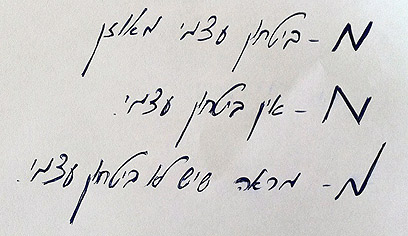 מ - ביטחון עצמי מאוזן
מ - אין ביטחון עצמי.
מ - מראה שיש לו ביטחון עצמי.